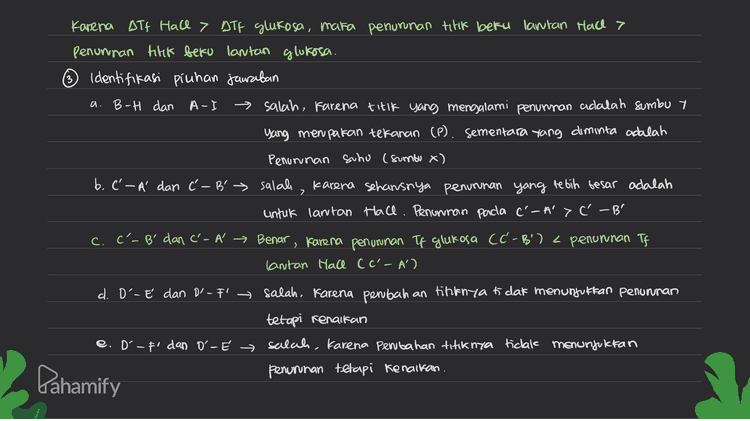 Karena ΔTf Hace > ΔTf glukosa, maka penurunan titik beku larutan Hace >
Penurunan titik beku larutan glukosa.
③ Identifikasi pilihan jawaban
a. B-H dan A-I → salah, karena titik yang mengalami penurunan adalah sumbu y
yang merupakan tekanan (P). Sementara yang diminta adalah
Penurunan suhu (sumbu x)
b. C'-A' dan C'-B' → salah, karena seharusnya penurunan yang lebih besar adalah
untuk larutan Hace. Penurunan pada C'-A' > C'-B'
c. C'-B' dan C'-A' → Benar, karena penurunan Tf glukosa (C'-B') < penurunan Tf
larutan Hace (C'-A')
d. D'-E' dan D'-F' → salah. Karena perubahan titiknya tidak menunjukkan penurunan
tetapi kenaikan
e. D'-F' dan D'-E' → salah, karena Perubahan titiknya tidak menunjukkan
penurunan tetapi kenaikan.
Pahamify